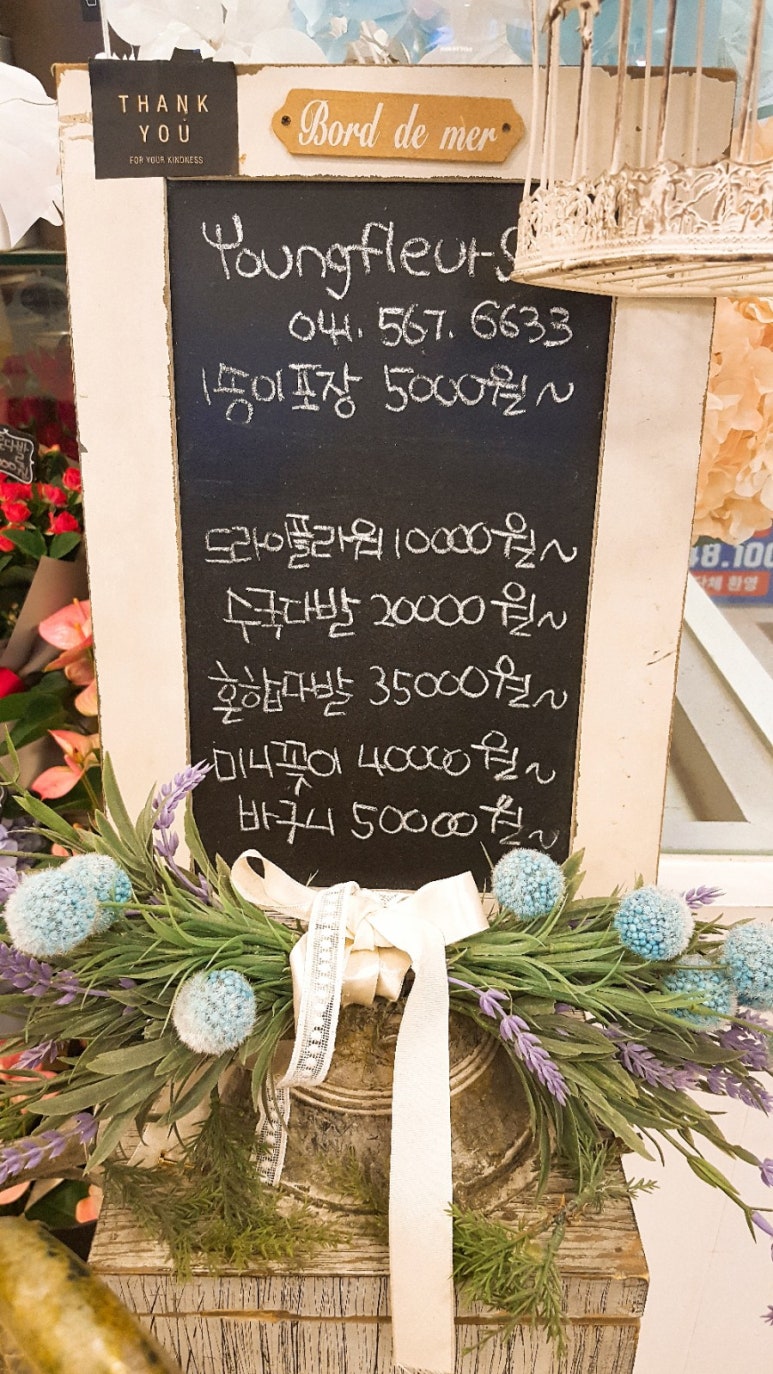 THANK
YOU
FOR YOUR KINDNESS
Bord de mer
Youngfleur-s
041. 567. 6633
1뚱이포장 5000월~
드라이플라워 10000월~
수국다발 20000월~
혼합다발 35000월~
미니꽂이 40000월~
바구니 50000월~
48.100
단체 환영